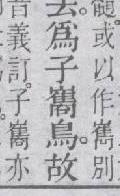 或以作雋別
去。爲子巂鳥。故
音義訂。子巂亦